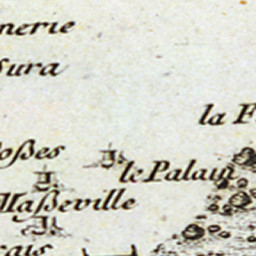 nerie
sura
la F
oßes
le Palain
Maßeville
rais